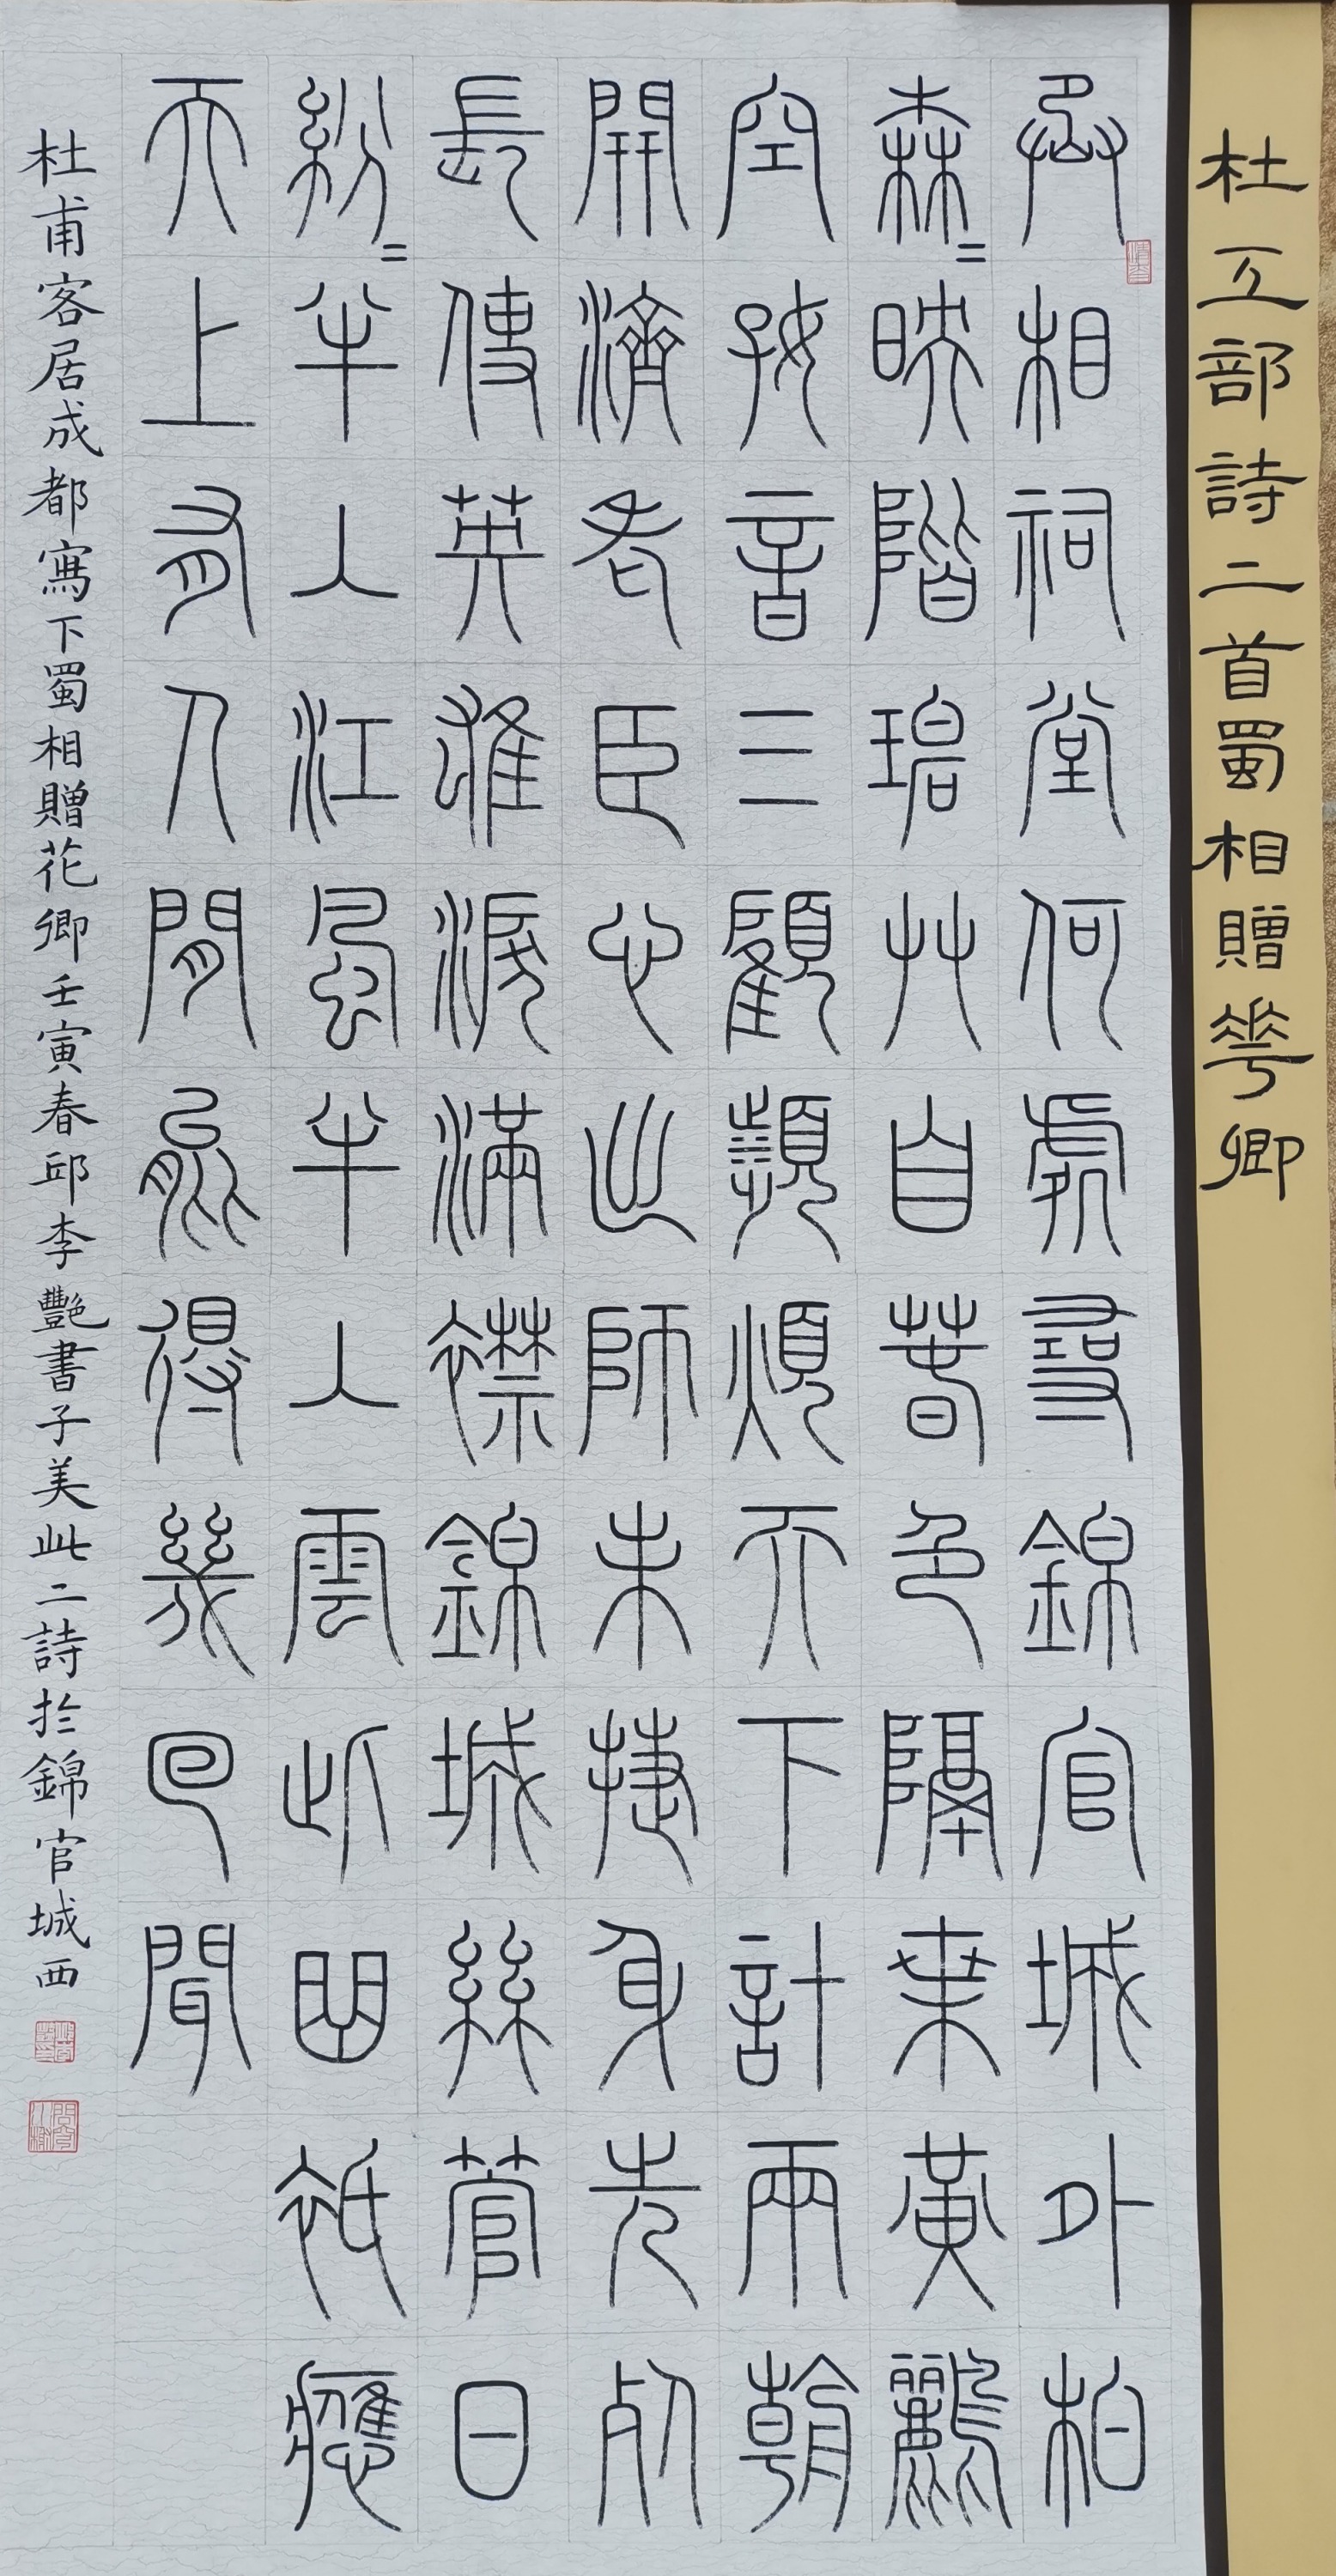 杜工部詩二首蜀相贈華卿
丞相祠堂何處尋錦官城外柏
森=映階碧艸自春色隔枼黃鸝
空好音三顧頻煩天下計兩朝
開濟老臣心出師未捷身先死
長使英雄淚滿襟錦城絲管日
紛=半入江風半入雲此曲祇應
天上有人間能得幾回聞
杜甫客居成都寫下蜀相贈花卿壬寅春邱李豔書子美此二詩於錦官城西